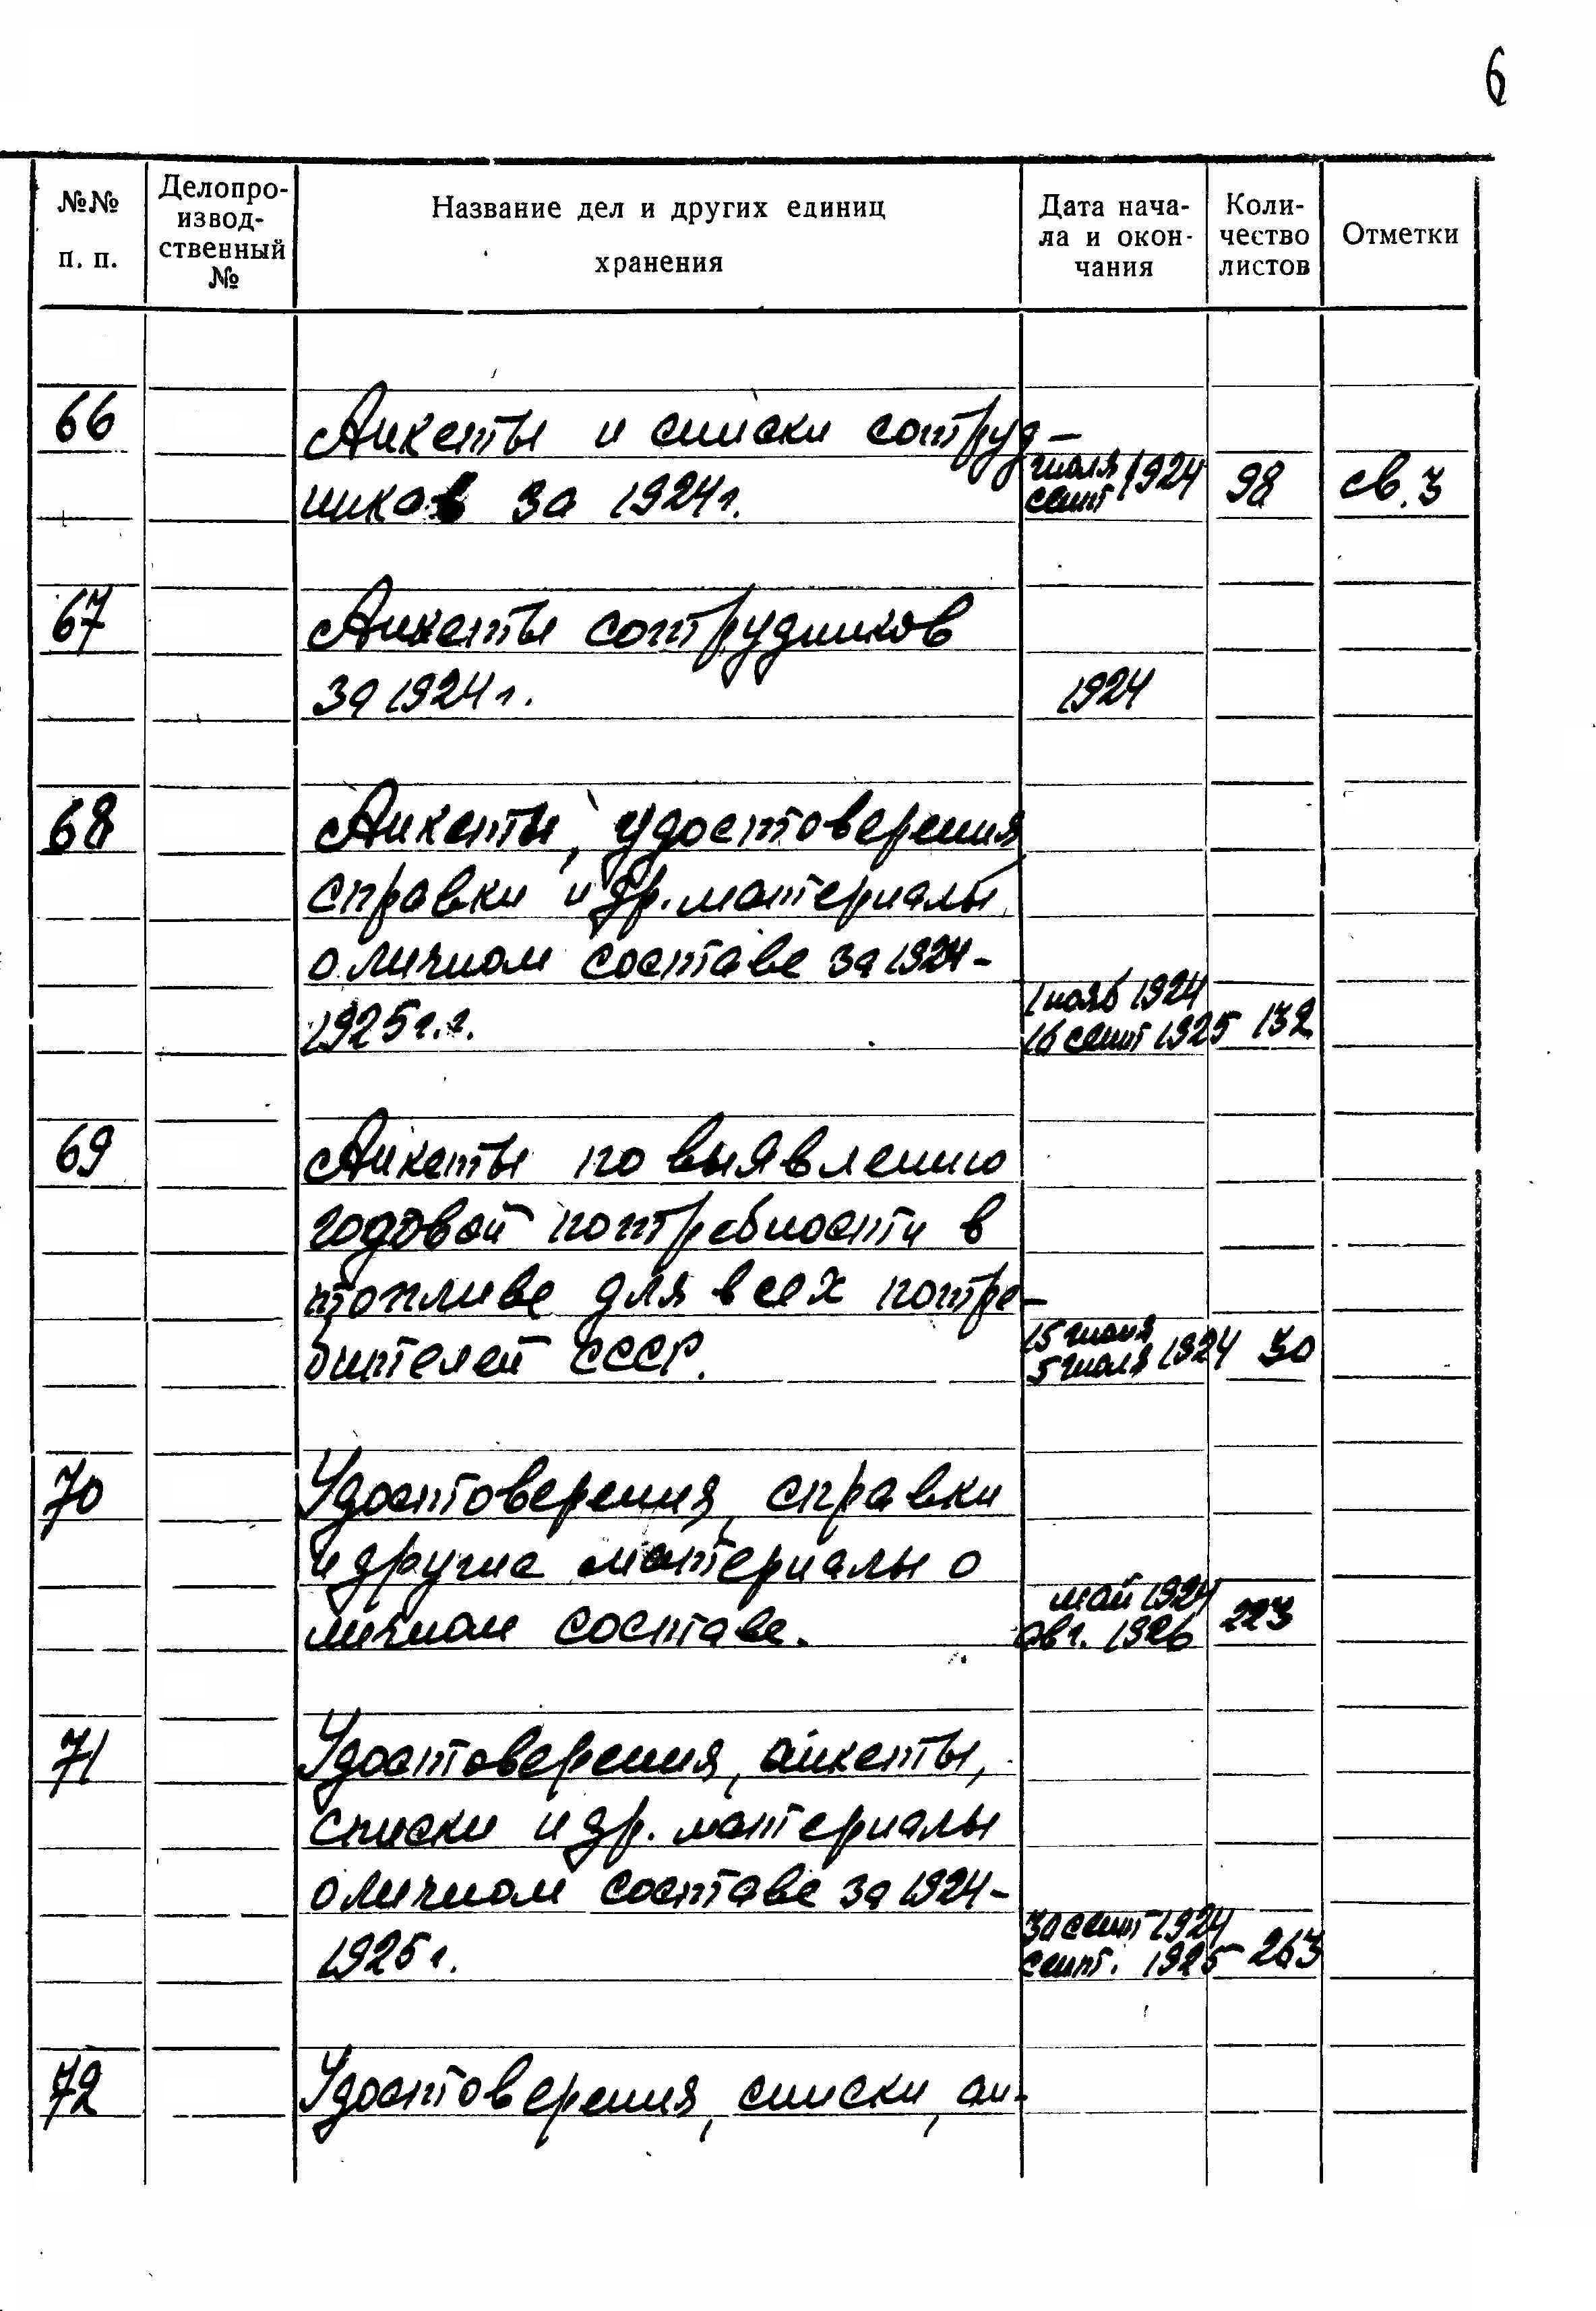 6
№№ п. п.
Делопро-
извод-
ственный
№
Название дел и других единиц
хранения
Дата нача-
ла и окон-
чания
Коли-
чество
листов
Отметки
66 Анкеты и списки сотруд-
ников за 1924г. июля сент 1924 98 св. 3
67 Анкеты сотрудников
за 1924г. 1924
68 Анкеты, удостоверения
справки и др. материалы
о личном составе за 1924-
1925г.г. 1 нояб 1924 16 сент 1925 132
69 Анкеты по выявлению
годовой потребности в
топливе для всех потре-
бителей СССР. 15 июня 5 июля 1924 30
70 Удостоверения, справки
и другие материалы о
личном составе. май 1924 авг. 1926 223
71 Удостоверения, анкеты,
списки и др. материалы
о личном составе за 1924-
1925г. 30 сент 1924 сент. 1925 263
72 Удостоверения, списки, ан-